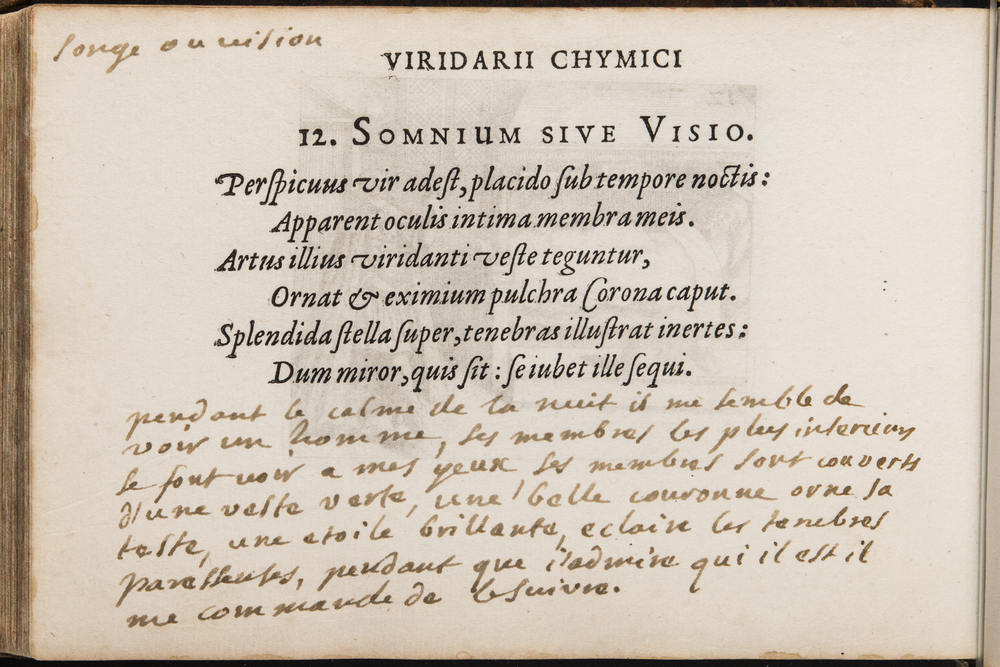 songe ou vision
VIRIDARII CHYMICI
12. SOMNIUM SIVE VISIO.
Perspicuus vir adest, placido sub tempore noctis:
Apparent oculis intima membra meis.
Artus illius viridanti veste teguntur,
Ornat & eximium pulchra Corona caput.
Splendida stella super, tenebras illustrat inertes:
Dum miror, quis sit: se iubet ille sequi.
pendant le calme de la nuit il me semble de
voir un homme, ses membres les plus interieurs
se font voir a mes yeux ses membres sont couverts
d'une veste verte, une belle couronne orne sa
teste, une etoile brillante, eclaire les tenebres
paresseuses, pendant que j'admire qui il est il
me commande de le suivre.